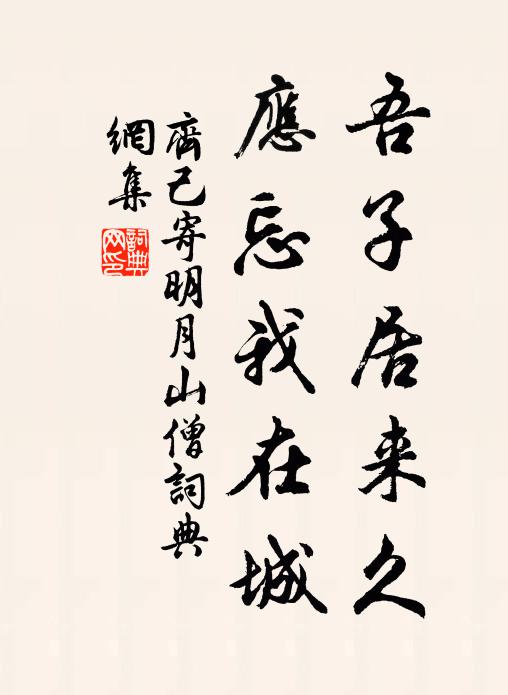 吾子居来久
應忘我在城
齊己寄明月山僧詞典
網集
詞典
网印